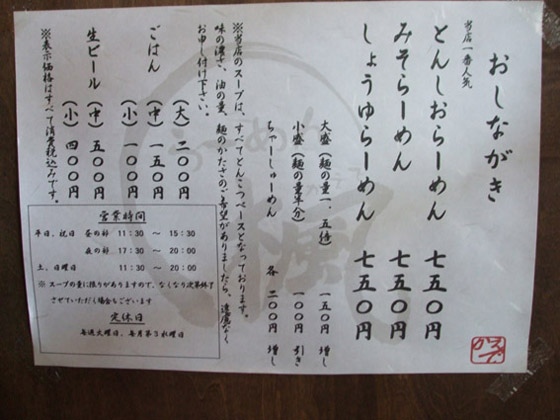 おしながき
当店一番人気
とんしおらーめん 七五〇円
みそらーめん 七五〇円
しょうゆらーめん 七五〇円
大盛(麺の量一、五倍) 一五〇円 増し
小盛(麺の量半分) 一〇〇円 引き
ちゃーしゅーめん 各 二〇〇円 増し
※当店のスープは、すべてとんこつベースとなっております。
味の濃さ、油の量、麺のかたさのご希望がありましたら、遠慮なく
お申し付け下さい。
ごはん (大) 二〇〇円
(中) 一五〇円
(小) 一〇〇円
生ビール (中) 五〇〇円
(小) 四〇〇円
※表示価格はすべて消費税込みです。
営業時間
平日、祝日 昼の部 11:30 ~ 15:30
夜の部 17:30 ~ 20:00
土、日曜日 11:30 ~ 20:00
※ スープの量に限りがありますので、なくなり次第終了
させていただく場合もございます
定休日
毎週火曜日、毎月第3水曜日
かえで